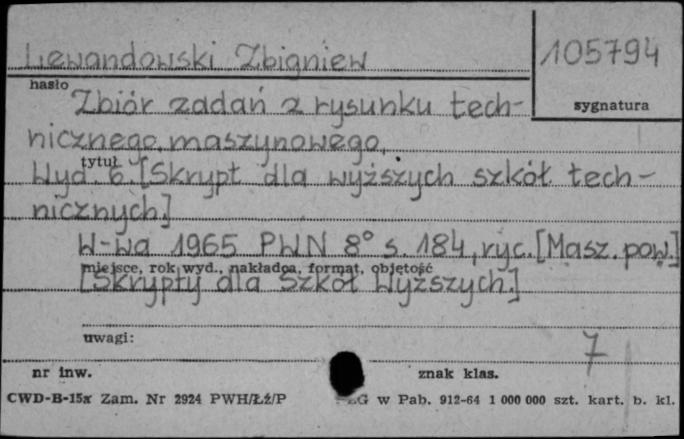 Lewandowski Zbigniew
105794
hasło
sygnatura
Zbiór zadań z rysunku tech-
nicznego, maszynowego.
tytuł
Wyd. 6. [Skrypt dla wyższych szkół tech-
nicznych.]
W-wa 1965 PWN 8° s. 184, ryc. [Masz. pow.]
miejsce, rok wyd., nakładca, format, objętość
[Skrypty dla Szkół Wyższych.]
uwagi:
7
nr inw.
znak klas.
CWD-B-15x Zam. Nr 2924 PWH/Łż/P
w Pab. 912-64 1 000 000 szt. kart. b. kl.